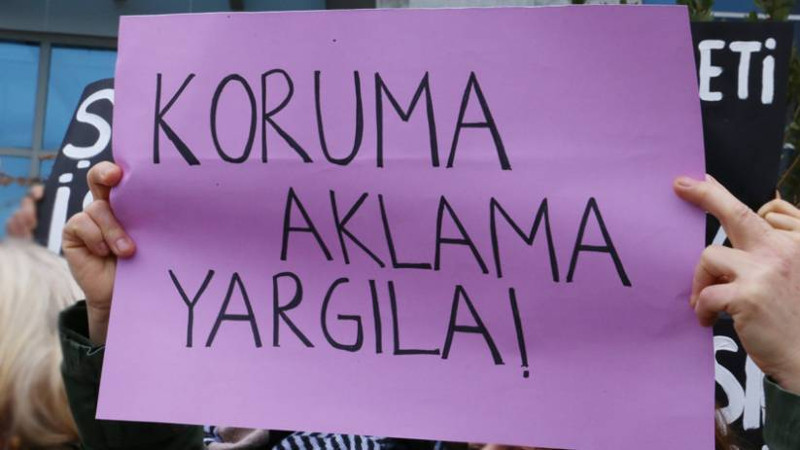 KORUMA
AKLAMA
YARGILA!
ETİ